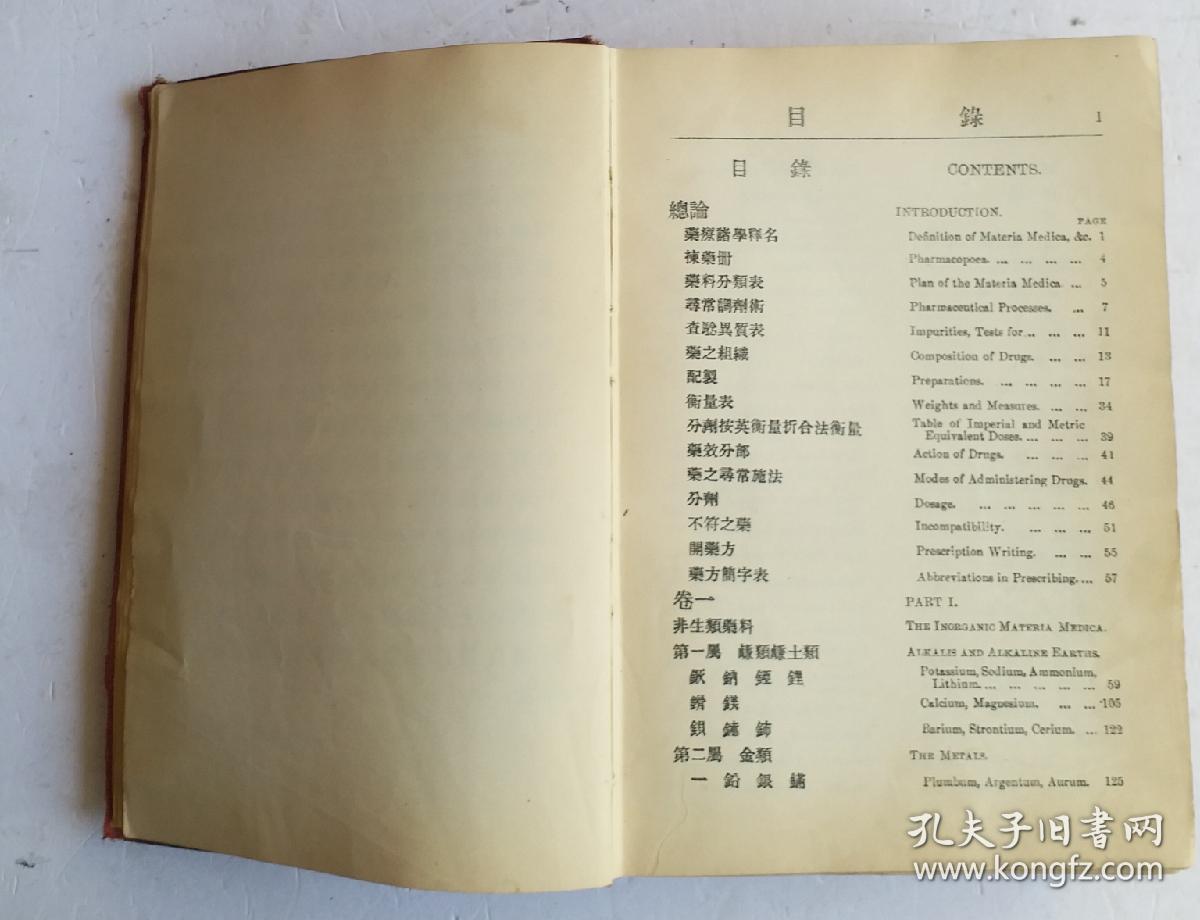 目 錄 1
目 錄 CONTENTS.
總論 INTRODUCTION.
PAGE
藥療諸學釋名 Definition of Materia Medica, &c. 1
揀藥冊 Pharmacopoea. ... ... ... ... 4
藥料分類表 Plan of the Materia Medica ... 5
尋常調劑術 Pharmaceutical Processes. ... 7
查驗異質表 Impurities, Tests for... ... ... 11
藥之組織 Composition of Drugs. ... ... 13
配製 Preparations. ... ... ... ... 17
衡量表 Weights and Measures. ... ... 34
分劑按英衡量折合法衡量 Table of Imperial and Metric
Equivalent Doses. ... ... ... 39
藥效分部 Action of Drugs. ... ... ... 41
藥之尋常施法 Modes of Administering Drugs. 44
分劑 Dosage. ... ... ... ... ... 46
不符之藥 Incompatibility. ... ... ... 51
開藥方 Prescription Writing. ... ... 55
藥方簡字表 Abbreviations in Prescribing.... 57
卷一 PART I.
非生類藥料 THE INORGANIC MATERIA MEDICA.
第一屬 類土類 ALKALIS AND ALKALINE EARTHS.
鈉 鋰 Potassium, Sodium, Ammonium,
Lithium. ... ... ... ... ... 59
鎂 Calcium, Magnesium. ... ... 105
鋇 Barium, Strontium, Cerium. ... 122
第二屬 金類 THE METALS.
一 鉛 銀 Plumbum, Argentum, Aurum. 125
孔夫子旧书网
www.kongfz.com